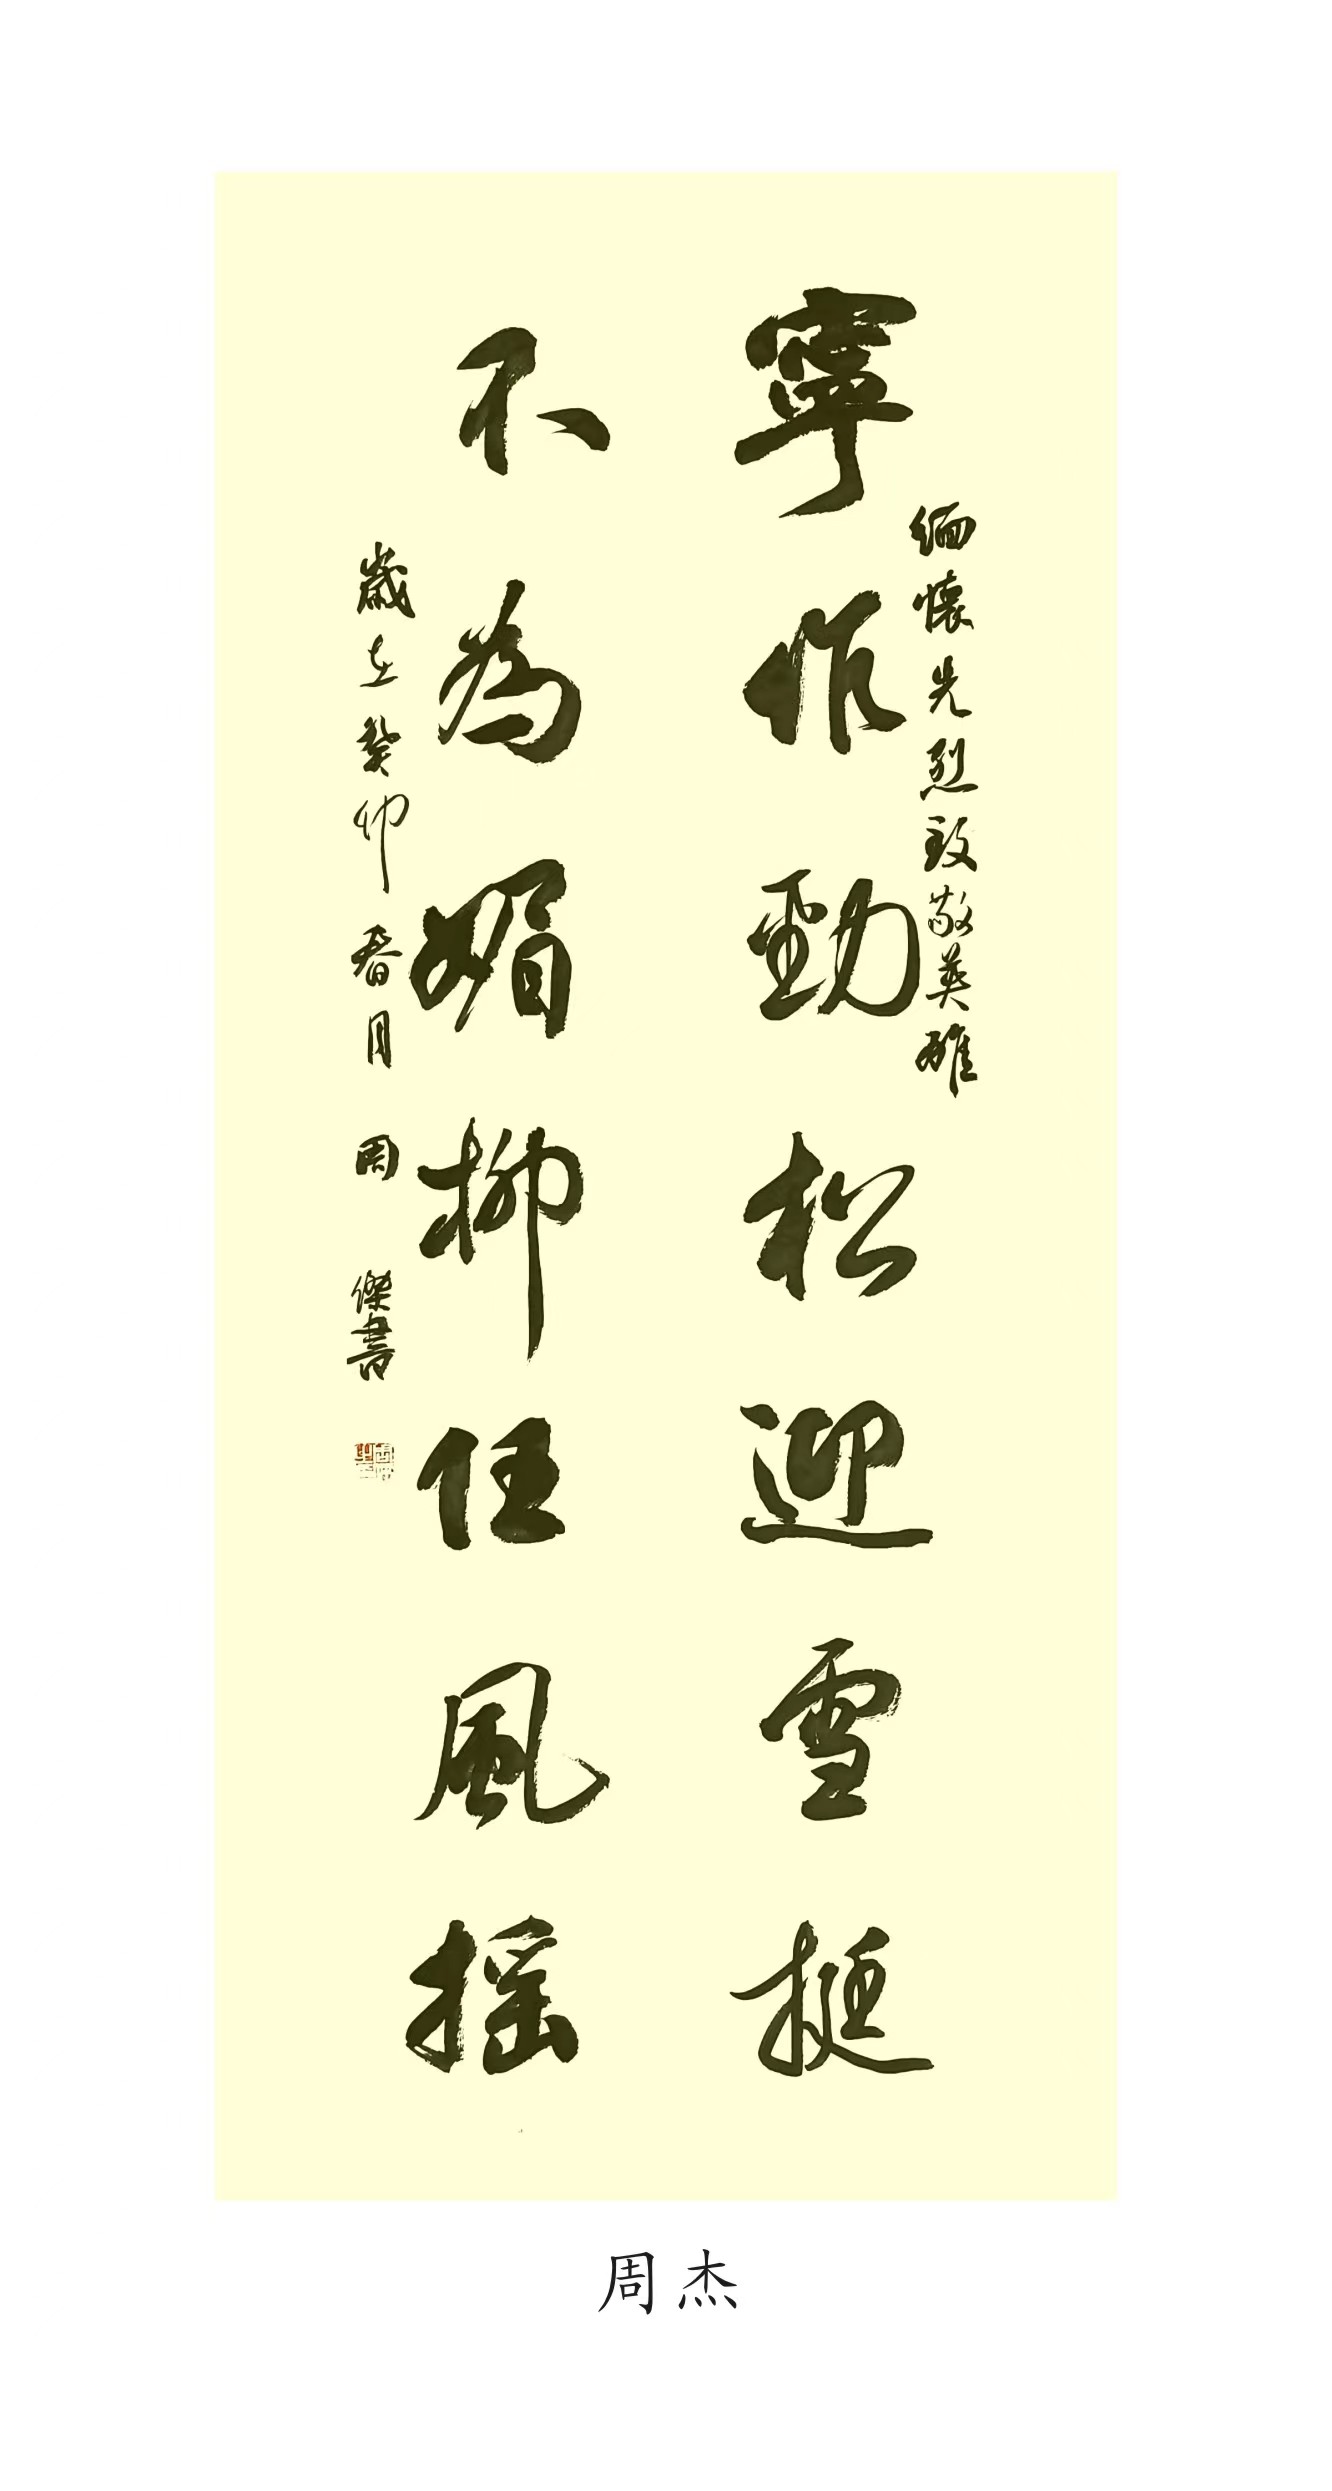 缅懷先烈致敬英雄
寧作勁松迎雪挺
不為媚柳任風摇
歲在癸卯春月 周傑書
周杰